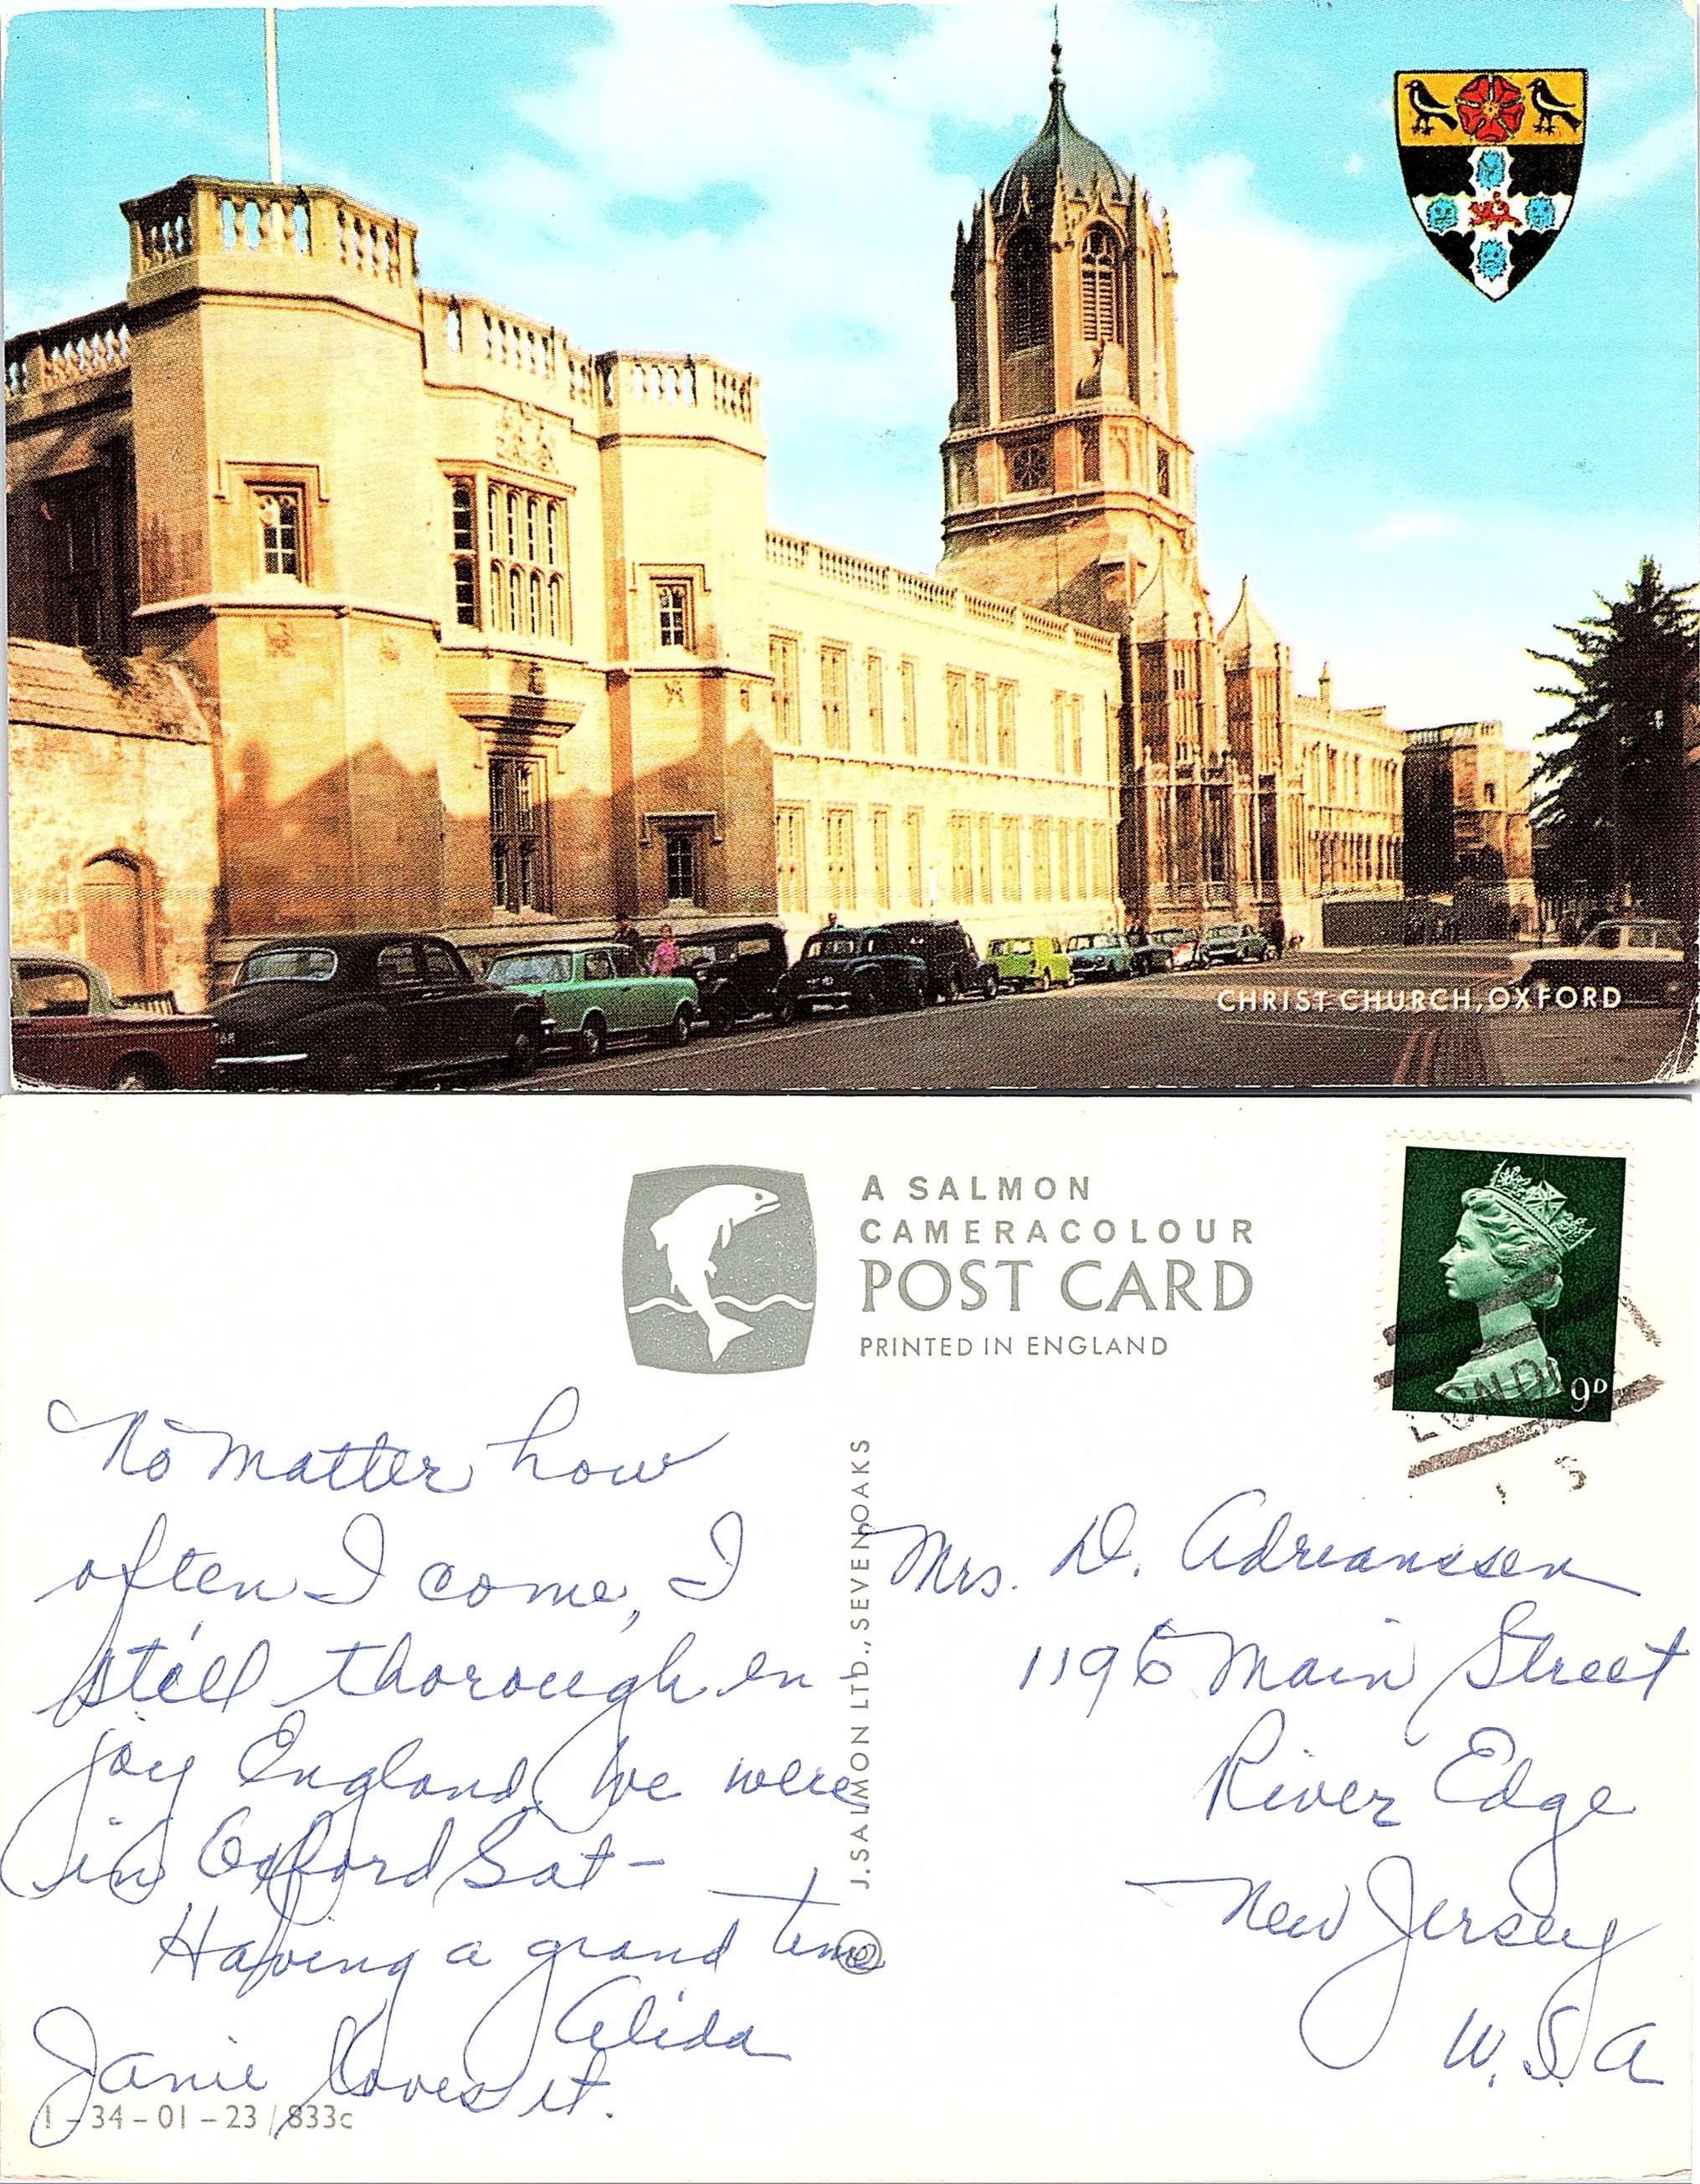 CHRIST CHURCH, OXFORD
A SALMON
CAMERACOLOUR
POST CARD
PRINTED IN ENGLAND
9D
LONDON
No matter how
often I come, I
still thorough en
joy England. We were
in Oxford Sat-
Having a grand time
Alida
Janie loves it.
1-34-01-23/833c
J. SALMON LTD., SEVENOAKS ©
Mrs. D. Adrianssen
1196 Main Street
River Edge
New Jersey
U.S.A